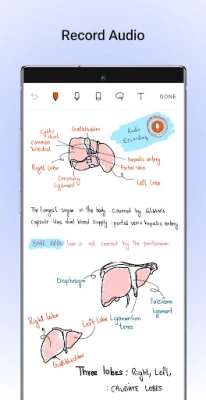 Record Audio
T DONE
Cystic duct
Gallbladder
Audio Recording
Common bile duct
hepatic artery
Portal vein
Right Lobe
Left Lobe
Coronary ligament
The Largest organ in the body. Covered by Glisson's
Capsule Has dual blood supply: portal vein & hepatic artery
BARE AREA liver is not covered by the peritoneum.
Diaphragm
Falciform ligament
Ligamentum teres
Right lobe
Left lobe
Gallbladder
Three lobes: Right, Left,
: CAUDATE LOBES